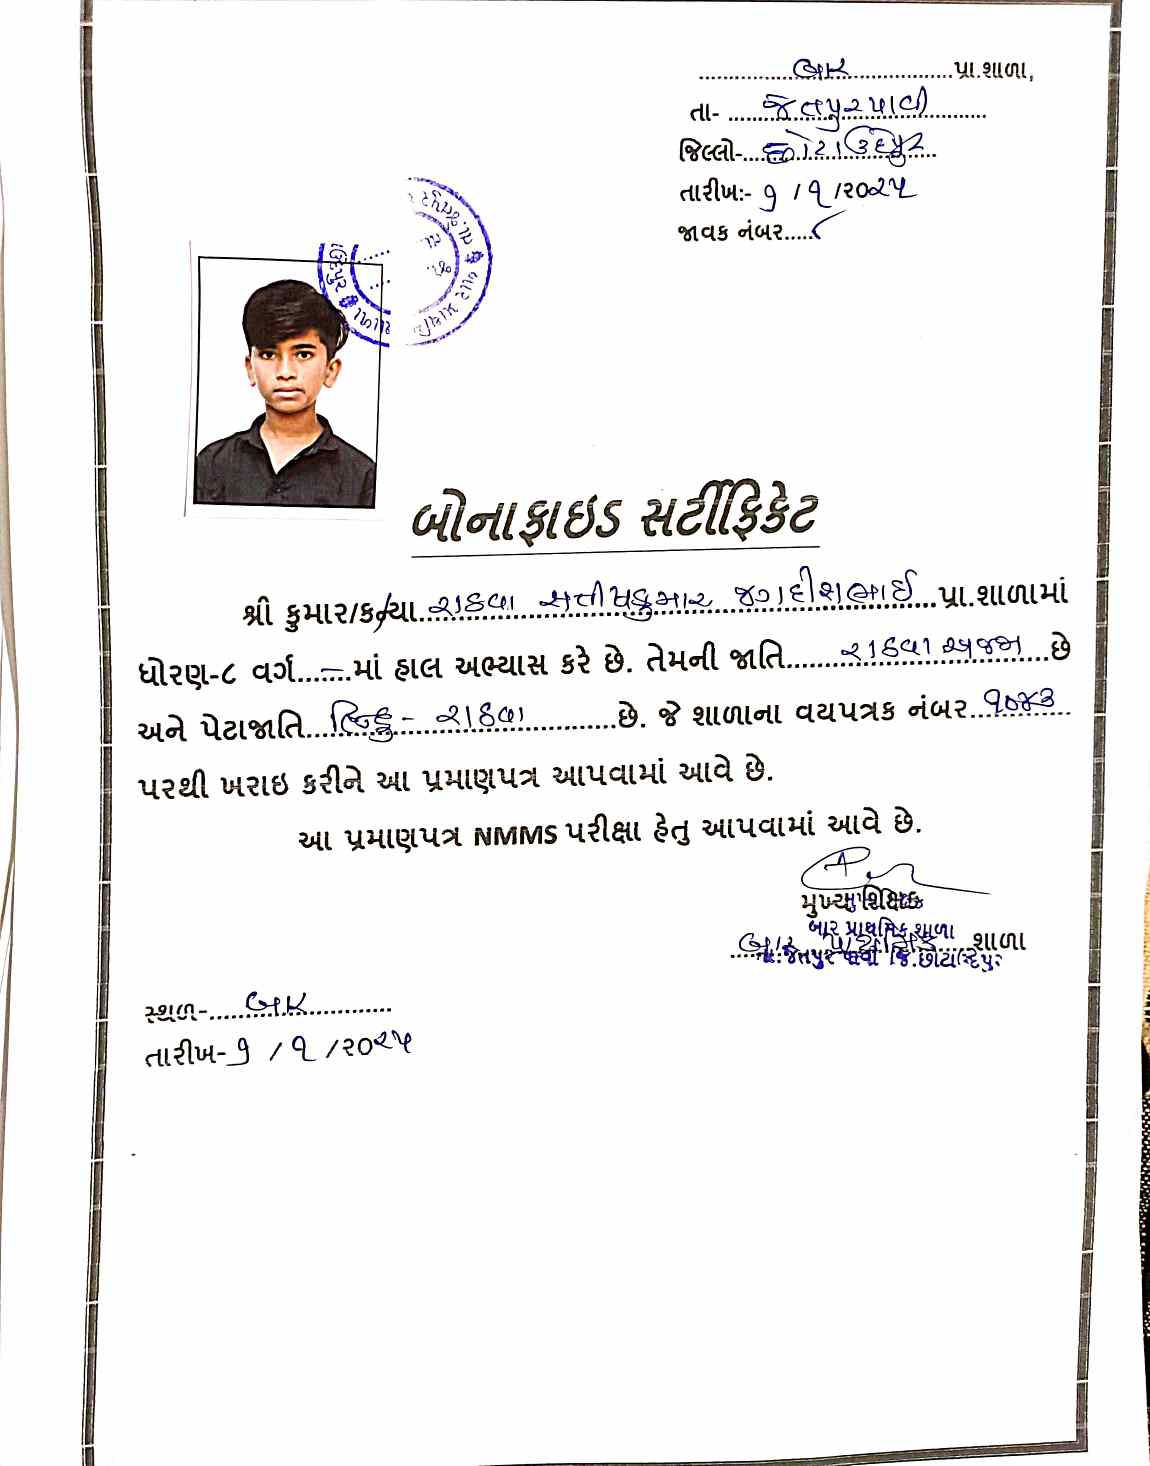 બાર પ્રા.શાળા,
તા- જેતપુરપાવી
જિલ્લો- છોટાઉદેપુર
તારીખ:- ૧ / ૧ /૨૦૨૫
જાવક નંબર.....
બોનાફાઇડ સર્ટીફિકેટ
શ્રી કુમાર/કન્યા રાઠવા સતીષકુમાર જગદીશભાઈ પ્રા.શાળામાં
ધોરણ-૮ વર્ગ......માં હાલ અભ્યાસ કરે છે. તેમની જાતિ રાઠવા અજજા છે
અને પેટાજાતિ હિન્દુ - રાઠવા છે. જે શાળાના વયપત્રક નંબર ૧૦૪૩
પરથી ખરાઇ કરીને આ પ્રમાણપત્ર આપવામાં આવે છે.
આ પ્રમાણપત્ર NMMS પરીક્ષા હેતુ આપવામાં આવે છે.
મુખ્ય શિક્ષક
બાર પ્રાથમિક શાળા
બાર પ્રાથમિક શાળા
તા.જેતપુર પાવી જિ.છોટાઉદેપુર
સ્થળ- બાર
તારીખ- ૧ / ૧ /૨૦૨૫